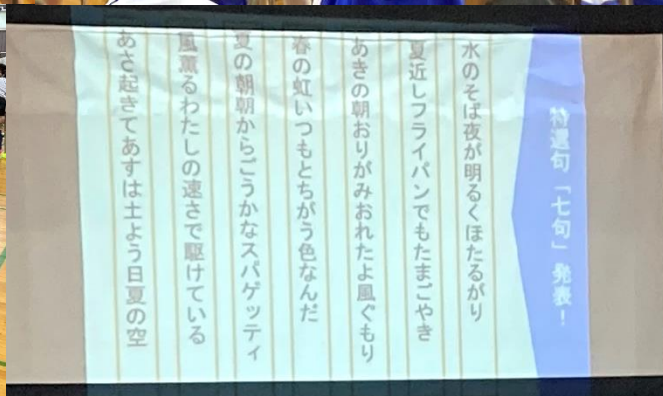 特選句「七句」発表！
水のそば夜が明るくほたるがり
夏近しフライパンでもたまごやき
あきの朝おりがみおれたよ風ぐもり
春の虹いつもとちがう色なんだ
夏の朝朝からごうかなスパゲッティ
風薫るわたしの速さで駆けている
あさ起きてあすは土よう日夏の空